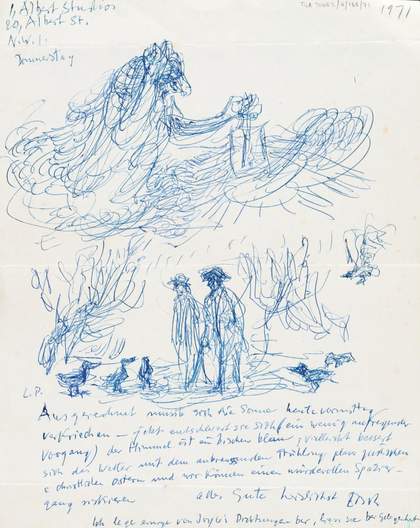 1, Albert Studios
Albert St.
N.W.1.
Donnerstag
1971
L.P.
Ausgerechnet musste sich die Sonne heute vormittag
verkriechen – jetzt entschleiert sie sich (ein wenig aufregender
Vorgang) der Himmel ist blau, vielleicht bessert
sich das Wetter mit dem Frühling plus jüdischen
& christlichen Ostern und wir können einen würdevollen Spazier-
gang riskieren alles Gute herzlichst
Ich lege einige von Zeichnungen bei, kann sie bei Gelegenheit